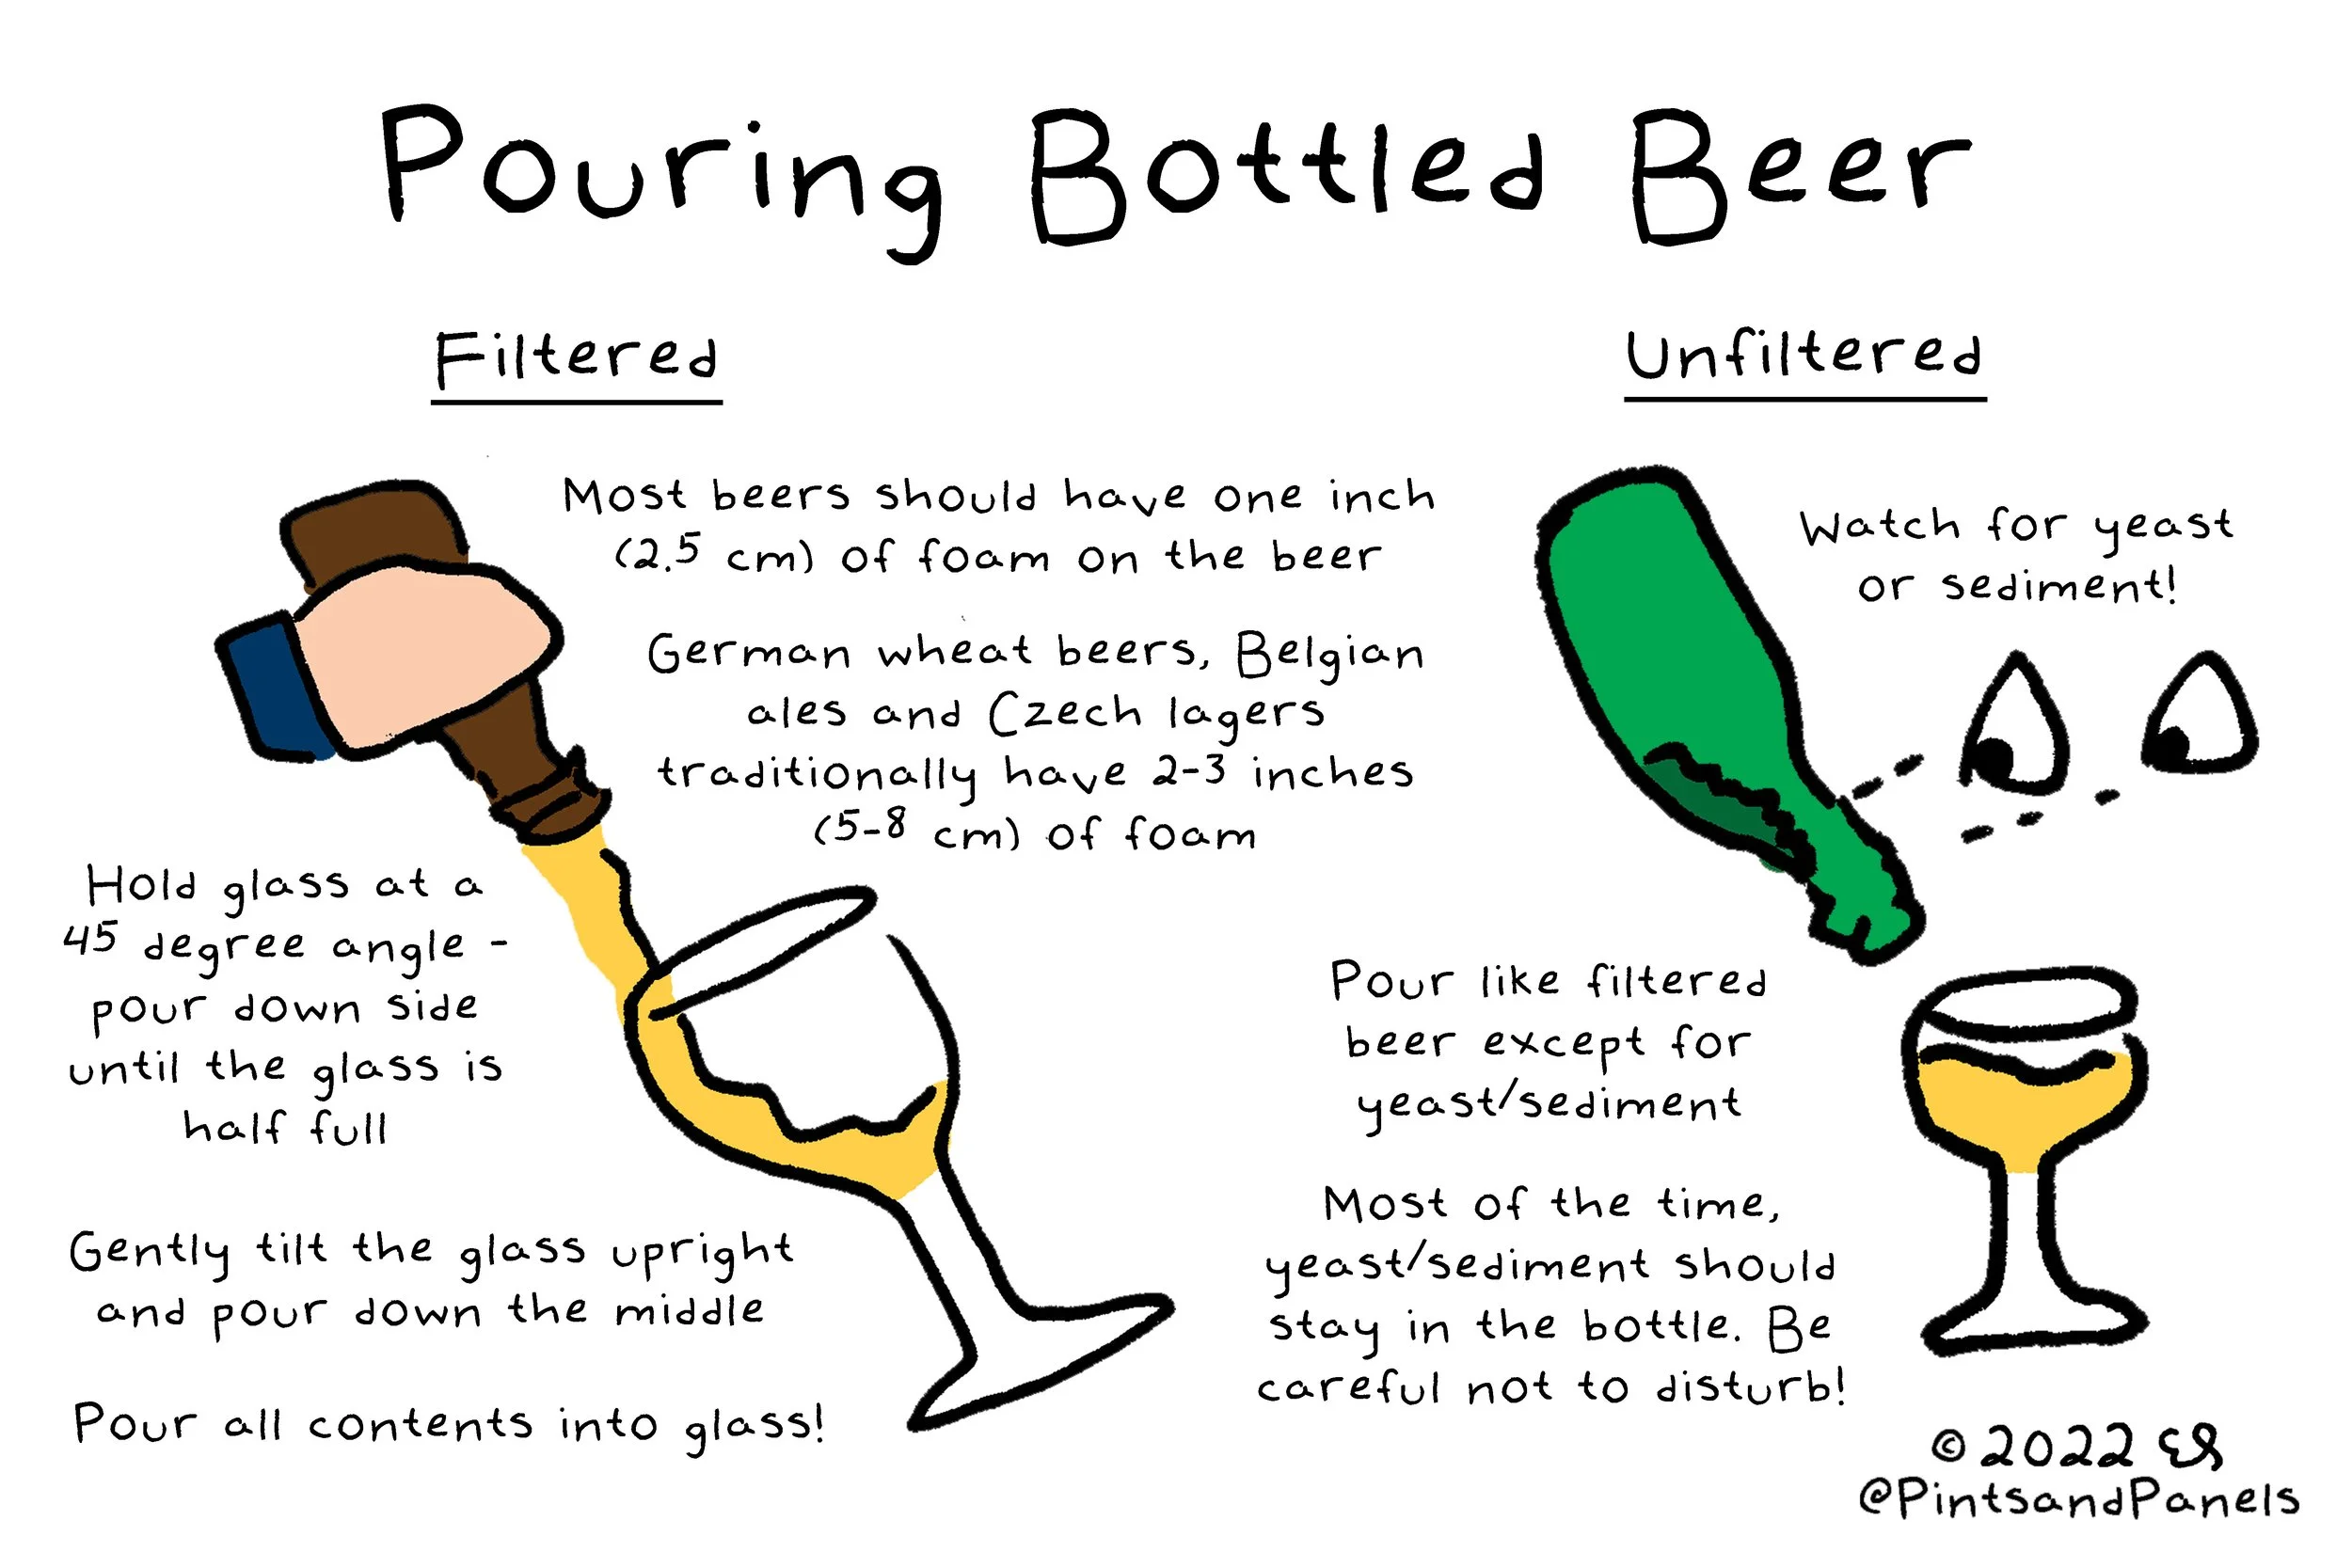 Pouring Bottled Beer
Filtered
Most beers should have one inch
(2.5 cm) of foam on the beer
German wheat beers, Belgian
ales and Czech lagers
traditionally have 2-3 inches
(5-8 cm) of foam
Hold glass at a
45 degree angle -
pour down side
until the glass is
half full
Gently tilt the glass upright
and pour down the middle
Pour all contents into glass!
Unfiltered
Watch for yeast
or sediment!
Pour like filtered
beer except for
yeast/sediment
Most of the time,
yeast/sediment should
stay in the bottle. Be
careful not to disturb!
© 2022
@PintsandPanels